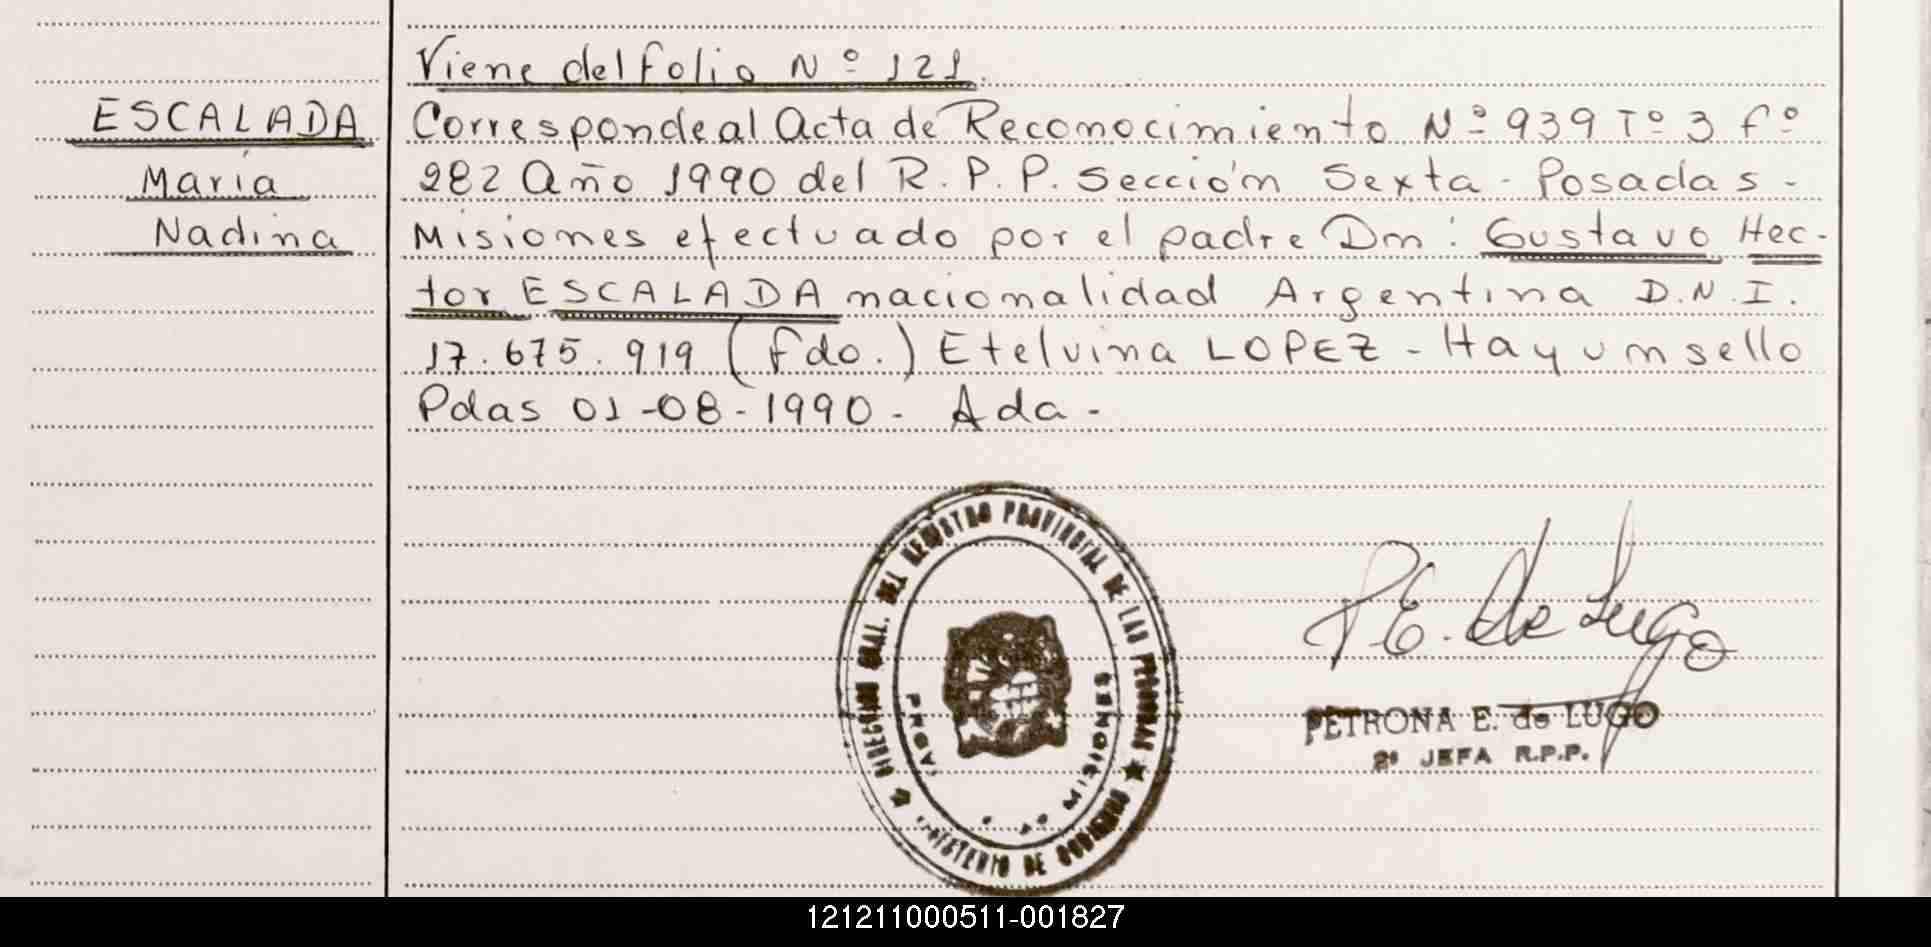 Viene del folio Nº 121.
ESCALADA
María
Nadina
Corresponde al Acta de Reconocimiento Nº 939 Tº 3 fº
282 Año 1990 del R.P.P. Sección Sexta - Posadas -
Misiones efectuado por el padre Dn: Gustavo Hec-
tor ESCALADA nacionalidad Argentina D.N.I.
17.675.919 (fdo.) Etelvina LOPEZ - Hay un sello
Pdas 01-08-1990 - Ada -
DIRECCION GRAL. DEL REGISTRO PROVINCIAL DE LAS PERSONAS
MINISTERIO DE GOBIERNO
P.E. de Lugo
PETRONA E. de LUGO
2ª JEFA R.P.P.
121211000511-001827